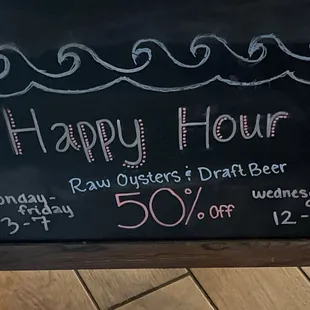 Happy Hour
Raw Oysters & Draft Beer
50% off
friday
3-7
12-